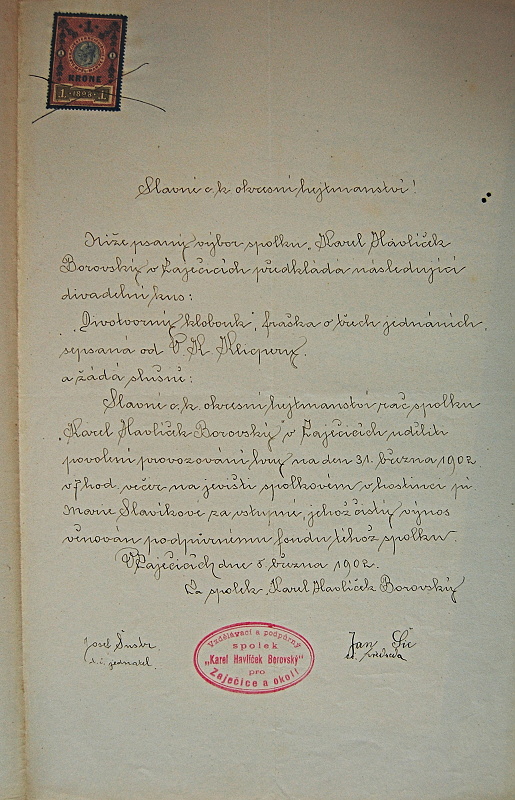 1
KRONE
1. 1898 1.
Slavné c. k. okresní hejtmanství!
Níže psaný výbor spolku „Karel Havlíček
Borovský v Zaječicích předkládá následující
divadelní kus:
„Divotvorný klobouk", fraška o třech jednáních,
sepsaná od V. K. Klicpery.
a žádá slušně:
Slavné c. k. okresní hejtmanství rač spolku
„Karel Havlíček Borovský" v Zaječicích uděliti
povolení provozování hry na den 31. března 1902
v hod. večer na jevišti spolkovém v hostinci pí
Marie Slavíkové za vstupné, jehož čistý výnos
věnován podpůrnému fondu téhož spolku.
V Zaječicích dne 5. března 1902.
Za spolek „Karel Havlíček Borovský"
Josef Šustr
t. č. jednatel.
Vzdělávací a podpůrný
spolek
„Karel Havlíček Borovský"
pro
Zaječice a okolí
Jan
t. č. předseda